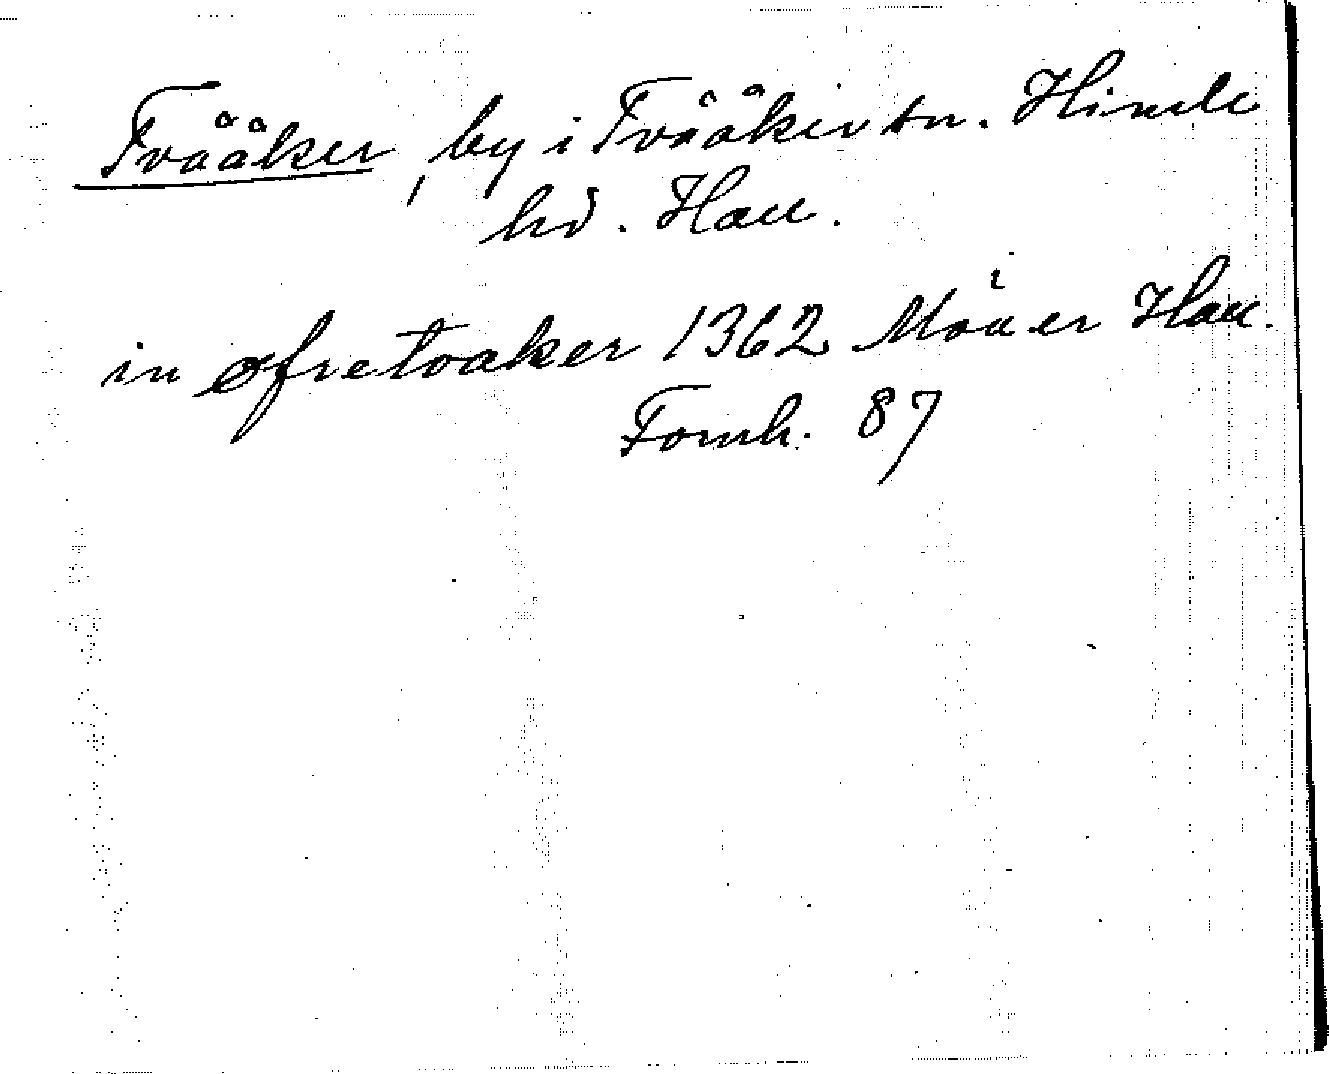 Tvååker, by i Tvååker sn. Himle
hd. Hall.
in øfretvaker 1362 Hall.
Fornh. 87